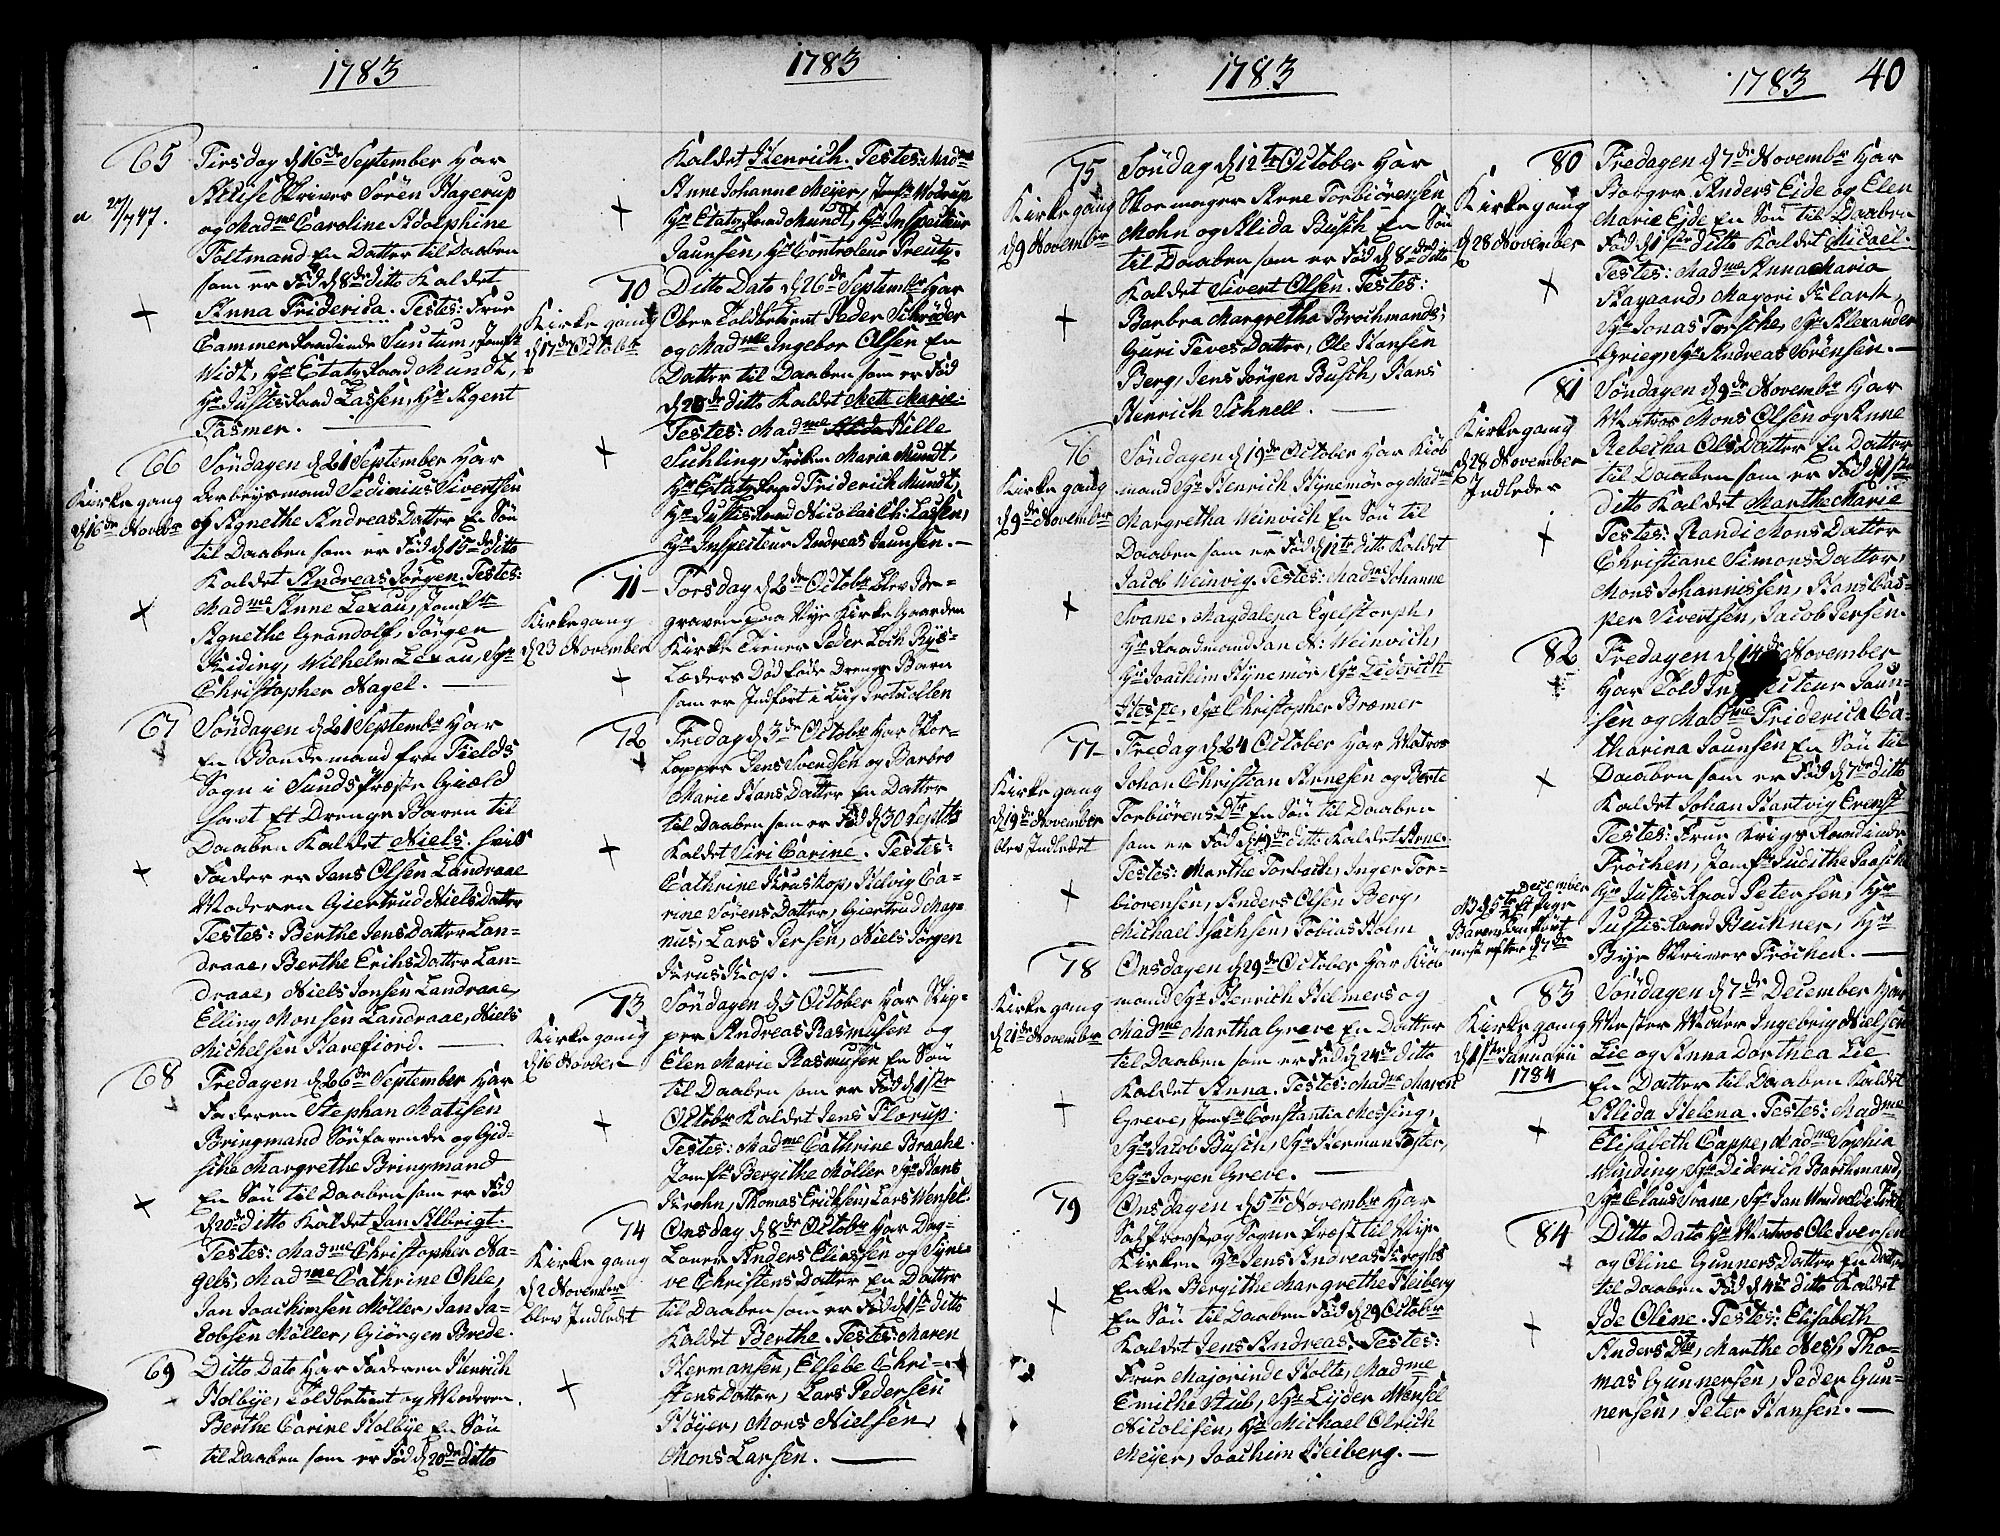 1783
65
a 27/747.
Tirsdag d 16de September Har
Stiftskriver Sören Hagerup
og Madme Caroline Adolphine
Foltmand En Datter til Daaben
som er Föd d 8de ditto Kaldet
Anna Friderica. Testes: Frue
Cammerraadinde Suntum, Jomfr
Widt, Hr Etatzraad Mundt,
Hr Justisraad Lassen, Hr Agent
Fasmer.
66
Kirkegang
d 16de Novbr
Söndagen d 21 September Har
Arbeysmand Sedinius Sivertsen
og Agnethe Andreas Datter En Sön
til Daaben som er Föd d 15de ditto
Kaldet Andreas Jörgen. Testes:
Madme Anne Lexau, Jomfr
Agnethe Grandolf, Jörgen
Kiding, Wilhelm Lexau, Sgr
Christopher Nagel.
67
Söndagen d 21 Septembr Har
En Bondemand fra Fields
Sogn i Sunds Præste Gield
havt Et Drenge Baren til
Daaben Kaldet Niels. hvis
Fader er Jens Olsen Landraae
Moderen Giertrud Niels Datter
Testes: Berthe Jens Datter Lan-
draae, Berthe Erichs Datter Lan-
draae, Niels Jonsen Landraae,
Elling Monsen Landraae, Niels
Michelsen Havefiord.
68
Fredagen d 26de September Har
Faderen Stephan Matisen
Bringmand Söefarende og Gid-
sche Margrethe Bringmand
En Sön til Daaben som er Föd
d 20de ditto Kaldet Jan Albrigt.
Testes: Madme Christopher Na-
gels, Madme Cathrine Ohle,
Jan Joachimsen Möller, Jan Ja-
cobsen Möller, Giörgen Brede.
69
Ditto Dato Har Faderen Hinrich
Holbye, Toldbetient og Moderen
Berthe Carine Holbye En Sön
til Daaben som er Föd d 20de ditto
1783
Kaldet Henrich. Testes: Madme
Anne Johanne Meyer, Jomfr
Hr Etatzraad Mundt, Hr Inspecteur
Jaunsen, Hr Controleur Treutz.
70
Kirkegang
d 17de Octobr
Ditto Dato d 26de Septembr Har
Ober Toldbetient Peder Schröder
og Madme Ingebor Olsen En
Datter til Daaben som er Föd
d 20de ditto Kaldet Mette Marie.
Testes: Madme Hille
Suhling, Fröken Maria Mundt,
Hr Etatzraad Friderich Mundt,
Hr Justisraad Nicolai Ch: Lassen,
Hr Inspecteur Andreas Jaunsen.
71
Kirkegang
d 23 November
Torsdag d 2de Octobr blev Be-
graven paa Nye Kirke Gaarden
Kirke Tiener Peder Loch Rys-
læders Död föde Drenge Barn
som er Indfört i Liig Protocollen
72
Fredag d 3de Octobr Har Skor-
Lapper Jens Svendsen og Barbro
Marie Hans Datter En Datter
til Daaben som er Föd d 30 Septbr
Kaldet Siri Carine. Testes:
Cathrine Kruskop, Helvig Ca-
rine Sörens Datter, Giertrud Mag-
nus, Lars Persen, Niels Jörgen
Kruskop.
73
Kirkegang
d 16 Novber
Söndagen d 5 October Har Skip-
per Andreas Rasmusen og
Elen Marie Rasmusen En Sön
til Daaben som er Föd d 1ste
Octobr Kaldet Jens Florup.
Testes: Madme Cathrine Braahe.
Jomfr Bergithe Möller Sgr Hans
Krohn, Thomas Erichsen, Lars Wensel.
74
Kirkegang
d 2 November
blev Indledet
Onsdag d 8de Octobr Har Dag-
Lönner Anders Eliassen og Syne-
ve Christens Datter En Datter
til Daaben som er Föd d 1ste ditto
Kaldet Berthe. Testes: Maren
Hermansen, Elsebe Chri-
stens Datter, Lars Pedersen
Höyer, Mons Nielsen,
Mons Larsen.
1783
75
Kirkegang
d 9 November
Söndag d 12te October Har
Skomager Arne Torbiörensen
Mohn og Alida Busch En Sön
til Daaben som er Föd d 8de ditto
Kaldet Sivert Olsen. Testes:
Barbra Margretha Brochmands,
Guri Teves Datter, Ole Hansen
Berg, Jens Jörgen Busch, Hans
Hinrich Schnell.
76
Kirkegang
d 9de November
Söndagen d 19de October Har Kiöb
mand Sgr Henrich Hynemör og Madme
Margretha Weinvich En Sön til
Daaben som er Föd d 12te ditto Kaldet
Jacob Weinvig. Testes: Madme Johanne
Svane, Magdalena Egelstorph,
Hr Raadmand Jan N: Weinvich,
Hr Joachim Hynemör, Sgr Liderich
Hespe, Sgr Christopher Bræmer
77
Kirkegang
d 19de November
blev Indledet
Fredag d 24 October Har Matros
Johan Christian Arnesen og Berte
Torbiörens Dtr En Sön til Daaben
som er Föd d 19de ditto Kaldet Arne.
Testes: Marthe Torbath, Inger Tor-
biörensen, Anders Olsen Berg,
Michael Isachsen, Tobias Holm
78
Kirkegang
d 21de November
Onsdagen d 29de October Har Kiöb
mand Sgr Henrich Hilmers og
Madme Martha Greve En Datter
til Daaben som er Föd d 24de ditto
Kaldet Anna. Testes: Madme Maren
Greve, Jomfr Constantia Messing,
Sgr Jacob Busch, Sgr Herman Foster,
Sgr Jörgen Greve.
79
Onsdagen d 5te Novembr Har
Sal: Provst og Sogne Præst til Nye
Kirken Hr Jens Andreas Kroghs
Enke Bergithe Margrethe Heiberg
En Sön til Daaben Föd d 29 October
Kaldet Jens Andreas. Testes:
Frue Majorinde Holtz, Madme
Emiche Stub, Sgr Lyder Wensel
Nicolisen, Hr Michael Olrich
Meyer, Joachim Heiberg.
1783 40
80
Kirkegang
d 28 November
Fredagen d 7de Novembr Har
Borger Anders Eide og Elen
Marie Eide En Sön til Daaben
Föd d 1ste ditto Kaldet Micael.
Testes: Madme Anna Maria
Hagaard, Margri Klark,
Sgr Jonas Forsche, Sgr Alexander
Grieg, Sgr Andreas Sörensen.
81
Kirkegang
d 28 November
Indleder
Söndagen d 9de Novembr Har
Matros Mons Olsen og Anne
Rebecha Ols Datter En Datter
til Daaben som er Föd d 1ste
ditto Kaldet Marthe Marie
Testes: Randi Mons Datter
Christiane Simons Datter,
Mons Johannissen, Hans Cas-
per Sivertsen, Jacob Jersen.
82
Fredagen d 14de November
Har Told Inspecteur Jaun-
sen og Madme Friderich Ca-
tharina Jaunsen En Sön til
Daaben som er Föd d 7de ditto
Kaldet Johan Hartvig Ernst
Testes: Frue Krigs Raadinde
Fröchen, Jomfr Judithe Paasche
Hr Justis Raad Petersen, Hr
Justis Raad Buchner, Hr
Bye Skriver Fröchen.
NB d 5te December Et Pige
Baren Indfört
nest efter d 7de
83
Kirkegang
d 1ste Januarii
1784
Söndagen d 7de December Har
Mester Maler Ingebrig Nielsen
Lie og Anna Dorthea Lie
En Datter til Daaben Kaldet
Alida Helena. Testes: Madme
Elisabeth Cappe, Madme Sophia
Minding, Sgr Diderich Barchmand,
Sgr Claus Svane, Sgr Jan
84
Ditto Dato Hr Matros Ole Iversen
og Oline Gunners Datter En Datter
til Daaben Föd d 4de ditto Kaldet
Ide Oline. Testes: Elisabeth
Anders Dtr, Marthe Ness, Tho-
mas Gunnersen, Peder Gun-
nersen, Peter Hansen.